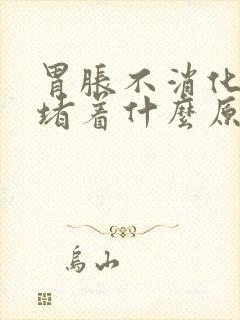 胃脹不消化
堵着什麼原
烏山